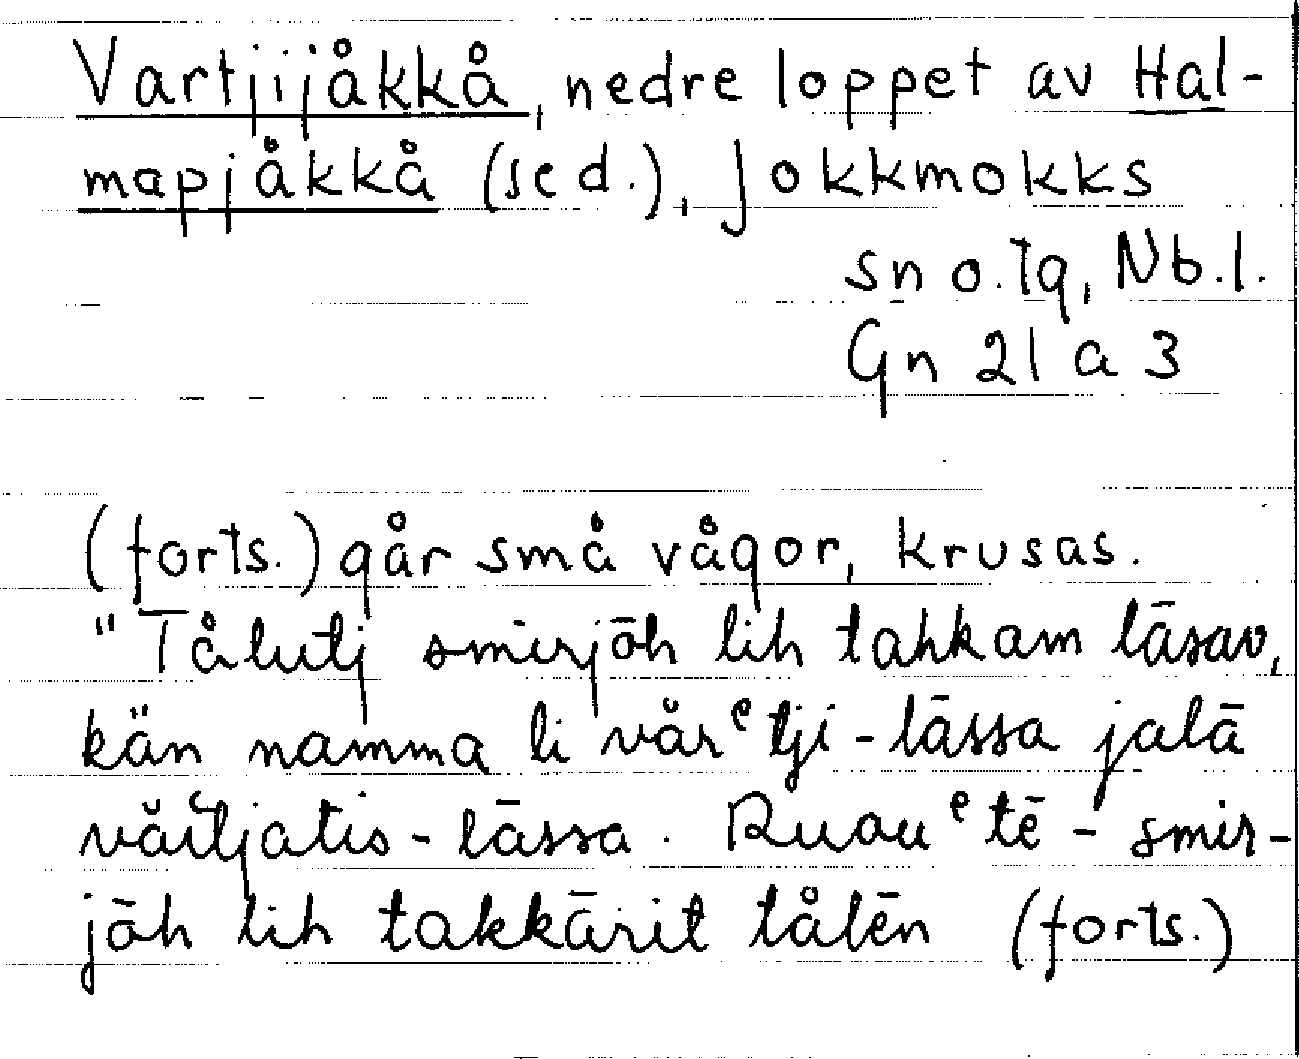 Vartjijåkkå, nedre loppet av Hal-
mapjåkkå (se d.), Jokkmokks
sn o. tg, Nb. l.
Gn 21 a 3
(forts.) går små vågor, krusas.
"Tålutj smirjōh lih tahkam lāsav,
kän namma li vår ᵉ tji-lāssa jalā
vărtjatis-lāssa. Ruou ᵉ tē-smir-
jōh lih takkārit tålēn (forts.)